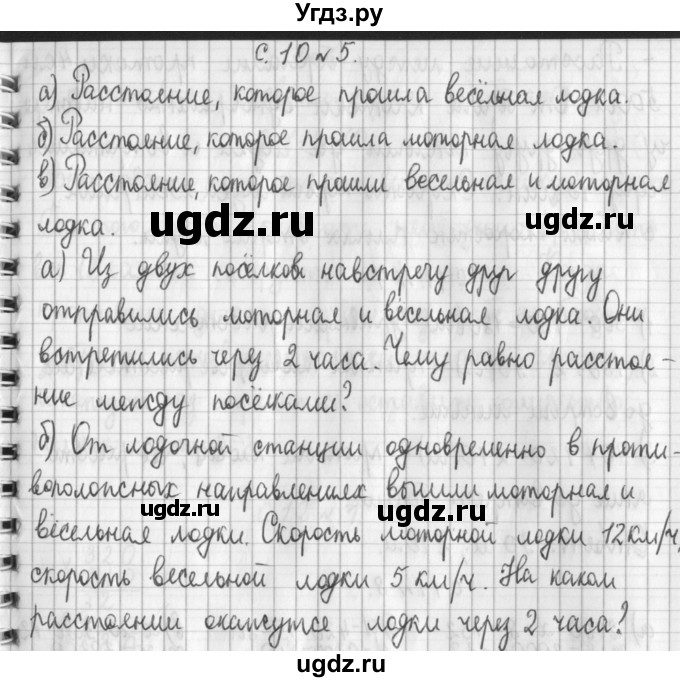 Угдз.ру
с. 10 №5.
а) Расстояние, которое прошла весёльная лодка.
б) Расстояние, которое прошла моторная лодка.
в) Расстояние, которое прошли весельная и моторная
лодка.
ugdz.ru ugdz.ru
а) Из двух посёлков навстречу друг другу
отправились моторная и весельная лодка. Они
встретились через 2 часа. Чему равно расстоя-
ние между посёлками?
б) От лодочной станции одновременно в проти-
воположных направлениях вышли моторная и
ugdz.ru ugdz.ru
вёсельная лодки. Скорость моторной лодки 12 км/ч,
скорость весельной лодки 5 км/ч. На каком
расстоянии окажутся лодки через 2 часа?
ugdz.ru